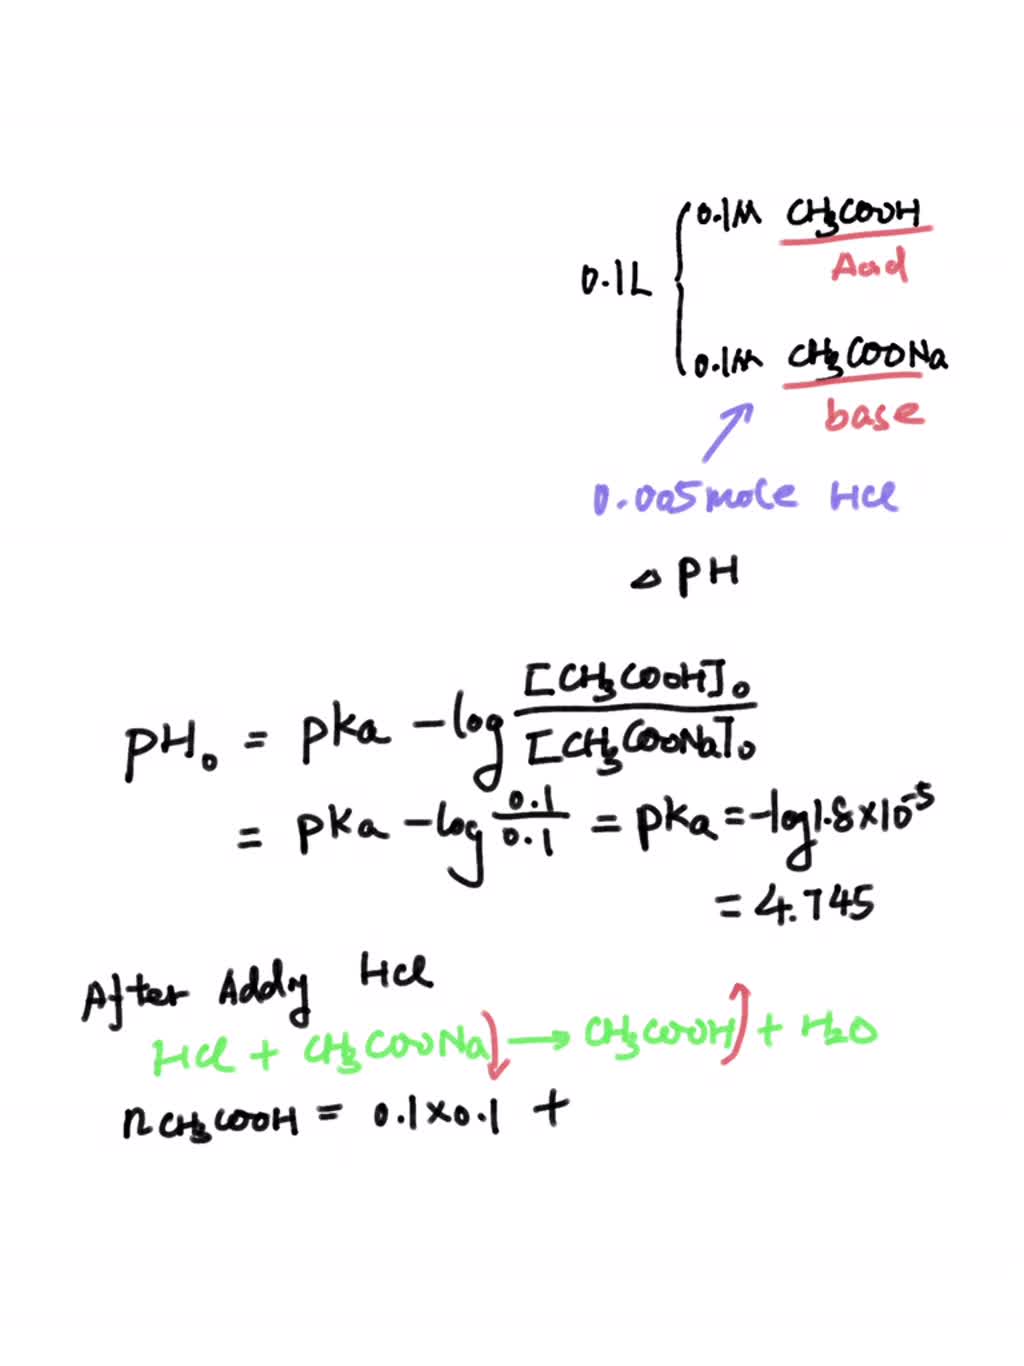 0.1M CH₃COOH
Acid
0.1L
0.1M CH₃COONa
base
0.005mole HCl
△ PH
pH₀ = pka - log [CH₃COOH]₀ / [CH₃COONa]₀
= pka - log 0.1 / 0.1 = pka = -log1.8×10⁻⁵
= 4.745
After Addy HCl
HCl + CH₃COONa → CH₃COOH + H₂O
n CH₃COOH = 0.1×0.1 +